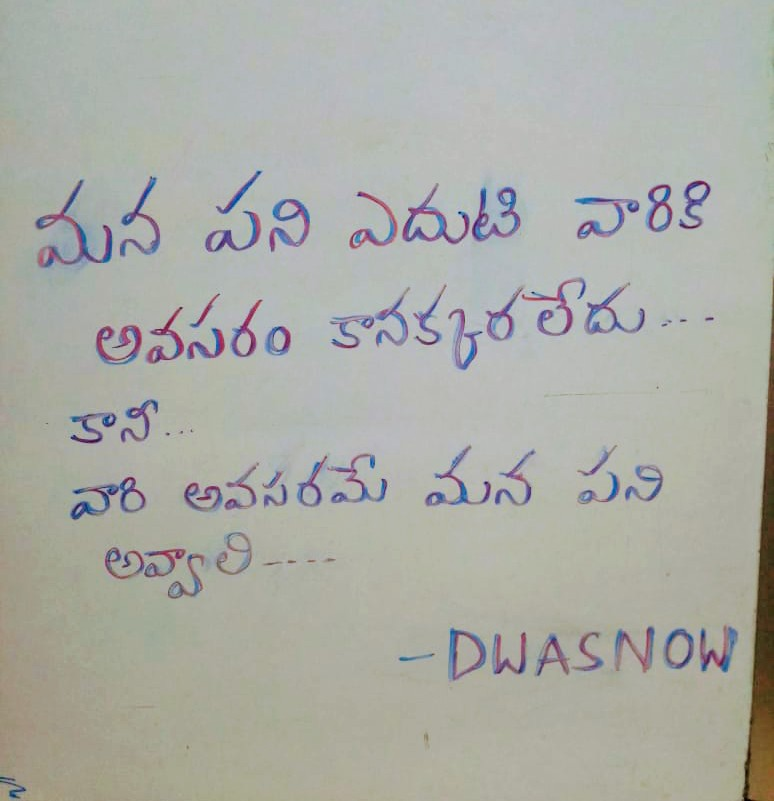 మన పని ఎదుటి వారికి
అవసరం కానక్కరలేదు...
కానీ...
వారి అవసరమే మన పని
అవ్వాలి----
-DWASNOW